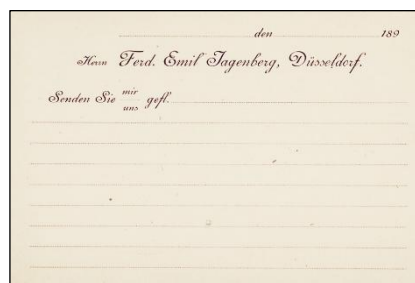 den 189
Herrn Ferd. Emil Jagenberg, Düsseldorf.
Senden Sie mir
uns gefl.